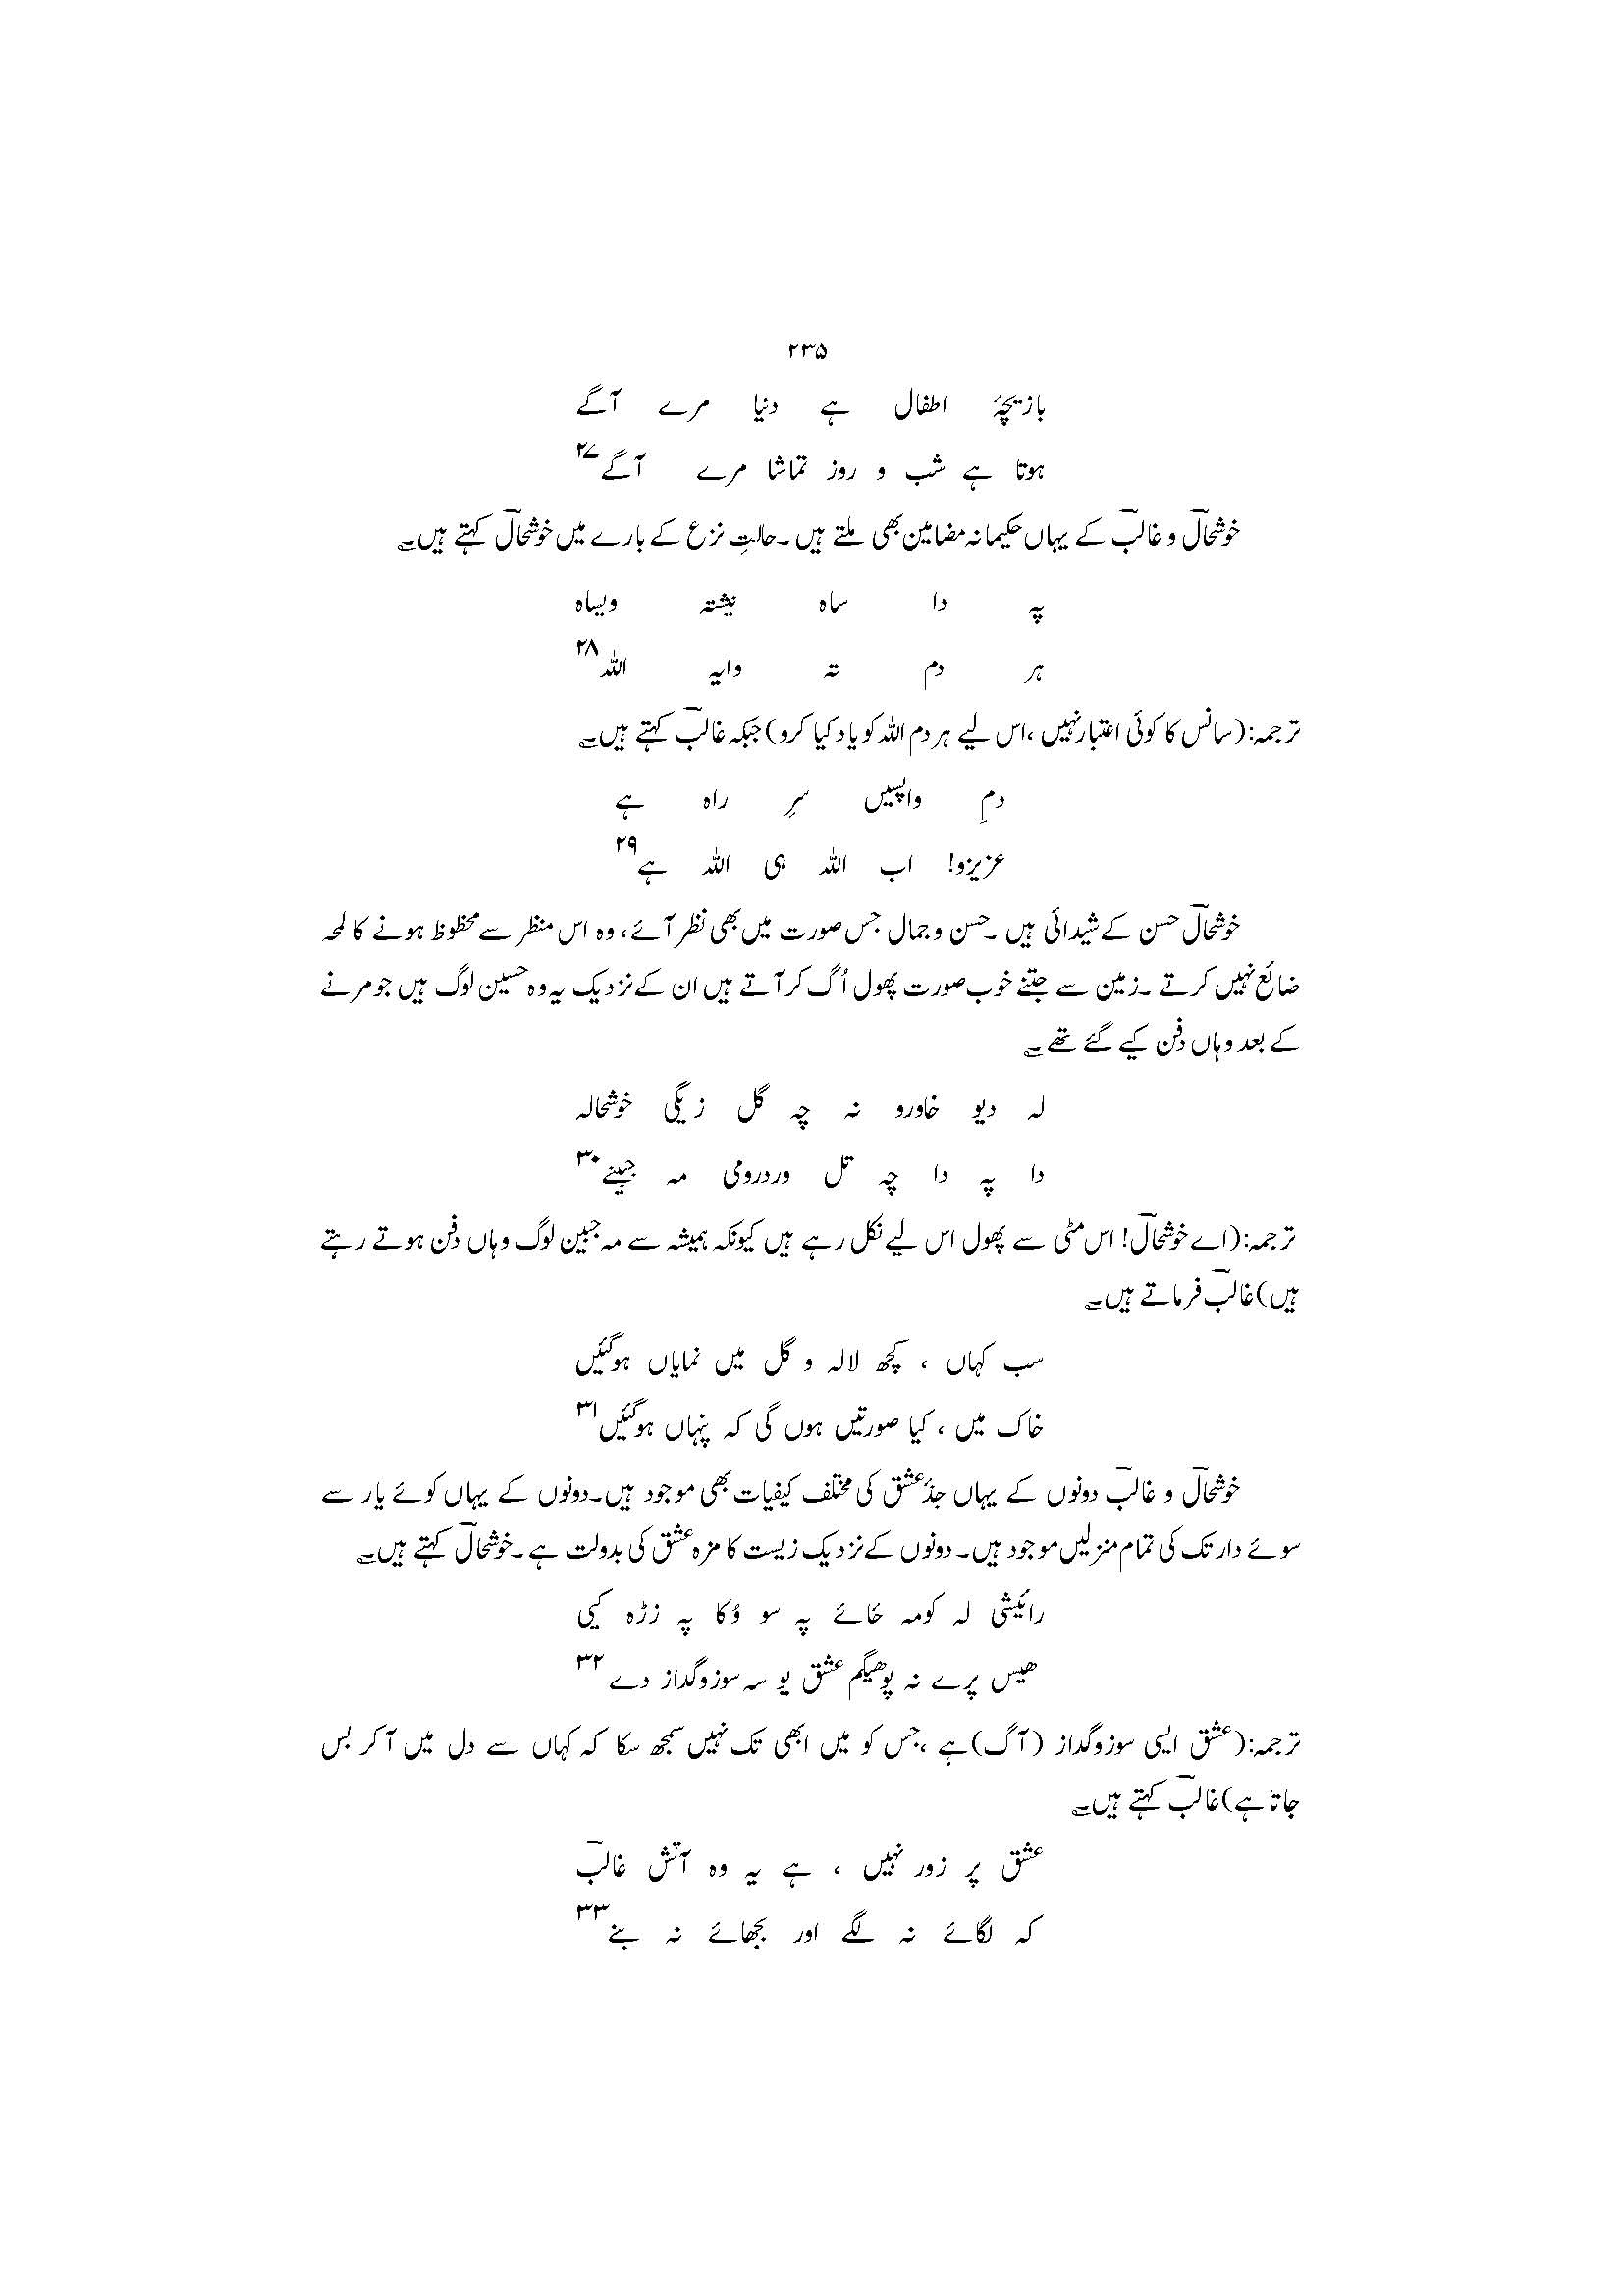 ۲۳۵
بازیچۂ اطفال ہے دنیا مرے آگے
ہوتا ہے شب و روز تماشا مرے آگے۲۷
خوشحالؔ و غالبؔ کے یہاں حکیمانہ مضامین بھی ملتے ہیں۔حالتِ نزع کے بارے میں خوشحالؔ کہتے ہیں؎
پہ دا ساہ نیشتہ ویساہ
ہر دم تہ وایہ اللہ۲۸
ترجمہ:(سانس کا کوئی اعتبار نہیں،اس لیے ہر دم اللہ کو یاد کیا کرو)جبکہ غالبؔ کہتے ہیں؎
دمِ واپسیں سرِ راہ ہے
عزیزو! اب اللہ ہی اللہ ہے۲۹
خوشحالؔ حسن کے شیدائی ہیں۔حسن و جمال جس صورت میں بھی نظر آئے، وہ اس منظر سے محظوظ ہونے کا لمحہ
ضائع نہیں کرتے۔زمین سے جتنے خوب صورت پھول اُگ کر آتے ہیں ان کے نزدیک یہ وہ حسین لوگ ہیں جو مرنے
کے بعد وہاں دفن کیے گئے تھے؎
لہ دیو خاورو نہ چہ گل زیگی خوشحالہ
دا پہ دا چہ تل وردرومی مہ جبینے۳۰
ترجمہ:(اے خوشحالؔ! اس مٹی سے پھول اس لیے نکل رہے ہیں کیونکہ ہمیشہ سے مہ جبین لوگ وہاں دفن ہوتے رہتے
ہیں)غالبؔ فرماتے ہیں؎
سب کہاں ، کچھ لالہ و گل میں نمایاں ہوگئیں
خاک میں ، کیا صورتیں ہوں گی کہ پنہاں ہوگئیں۳۱
خوشحالؔ و غالبؔ دونوں کے یہاں جذبۂ عشق کی مختلف کیفیات بھی موجود ہیں۔دونوں کے یہاں کوئے یار سے
سوئے دار تک کی تمام منزلیں موجود ہیں۔دونوں کے نزدیک زیست کا مزہ عشق کی بدولت ہے۔خوشحالؔ کہتے ہیں؎
رائیشی لہ کومہ خائے پہ سو وُکا پہ زڑہ کیی
ھیس پرے نہ پوھیگم عشق یو سہ سوزوگداز دے۳۲
ترجمہ:(عشق ایسی سوزوگداز (آگ)ہے،جس کو میں ابھی تک نہیں سمجھ سکا کہ کہاں سے دل میں آکر بس
جاتا ہے)غالبؔ کہتے ہیں؎
عشق پر زور نہیں ، ہے یہ وہ آتش غالبؔ
کہ لگائے نہ لگے اور بجھائے نہ بنے۳۳